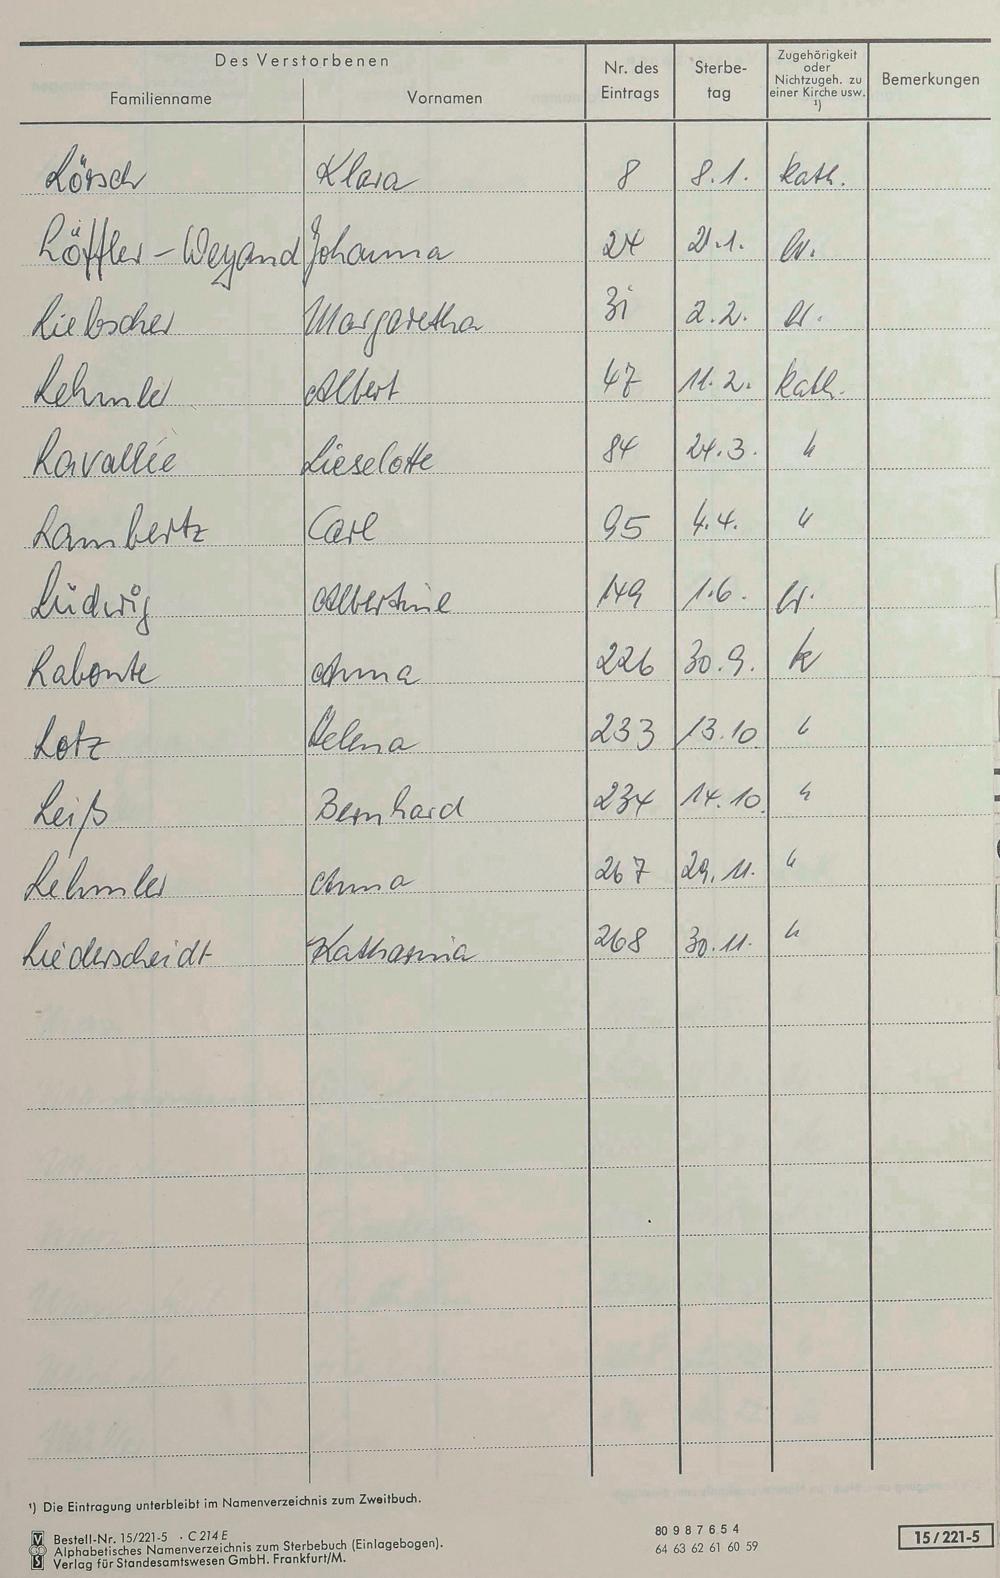 Des Verstorbenen
Familienname Vornamen Nr. des Eintrags Sterbe-tag Zugehörigkeit oder Nichtzugeh. zu einer Kirche usw. ¹) Bemerkungen
Lörsch Klara 8 8.1. kath.
Löffler-Weyand Johanna 24 21.1. ev.
Liebscher Margaretha 31 2.2. ev.
Lehmler Albert 47 11.2. kath.
Lavallée Lieselotte 84 24.3. "
Lambertz Carl 95 4.4. "
Lüdwig Albertine 149 1.6. ev.
Labonte Anna 226 30.9. k
Lotz Helena 233 13.10 "
Leiß Bernhard 234 14.10. "
Lehmler Anna 267 29.11. "
Liederscheidt Katharina 268 30.11. "
¹) Die Eintragung unterbleibt im Namenverzeichnis zum Zweitbuch.
Bestell-Nr. 15/221-5 · C 214 E
Alphabetisches Namenverzeichnis zum Sterbebuch (Einlagebogen).
Verlag für Standesamtswesen GmbH. Frankfurt/M.
80 9 8 7 6 5 4
64 63 62 61 60 59
15/221-5